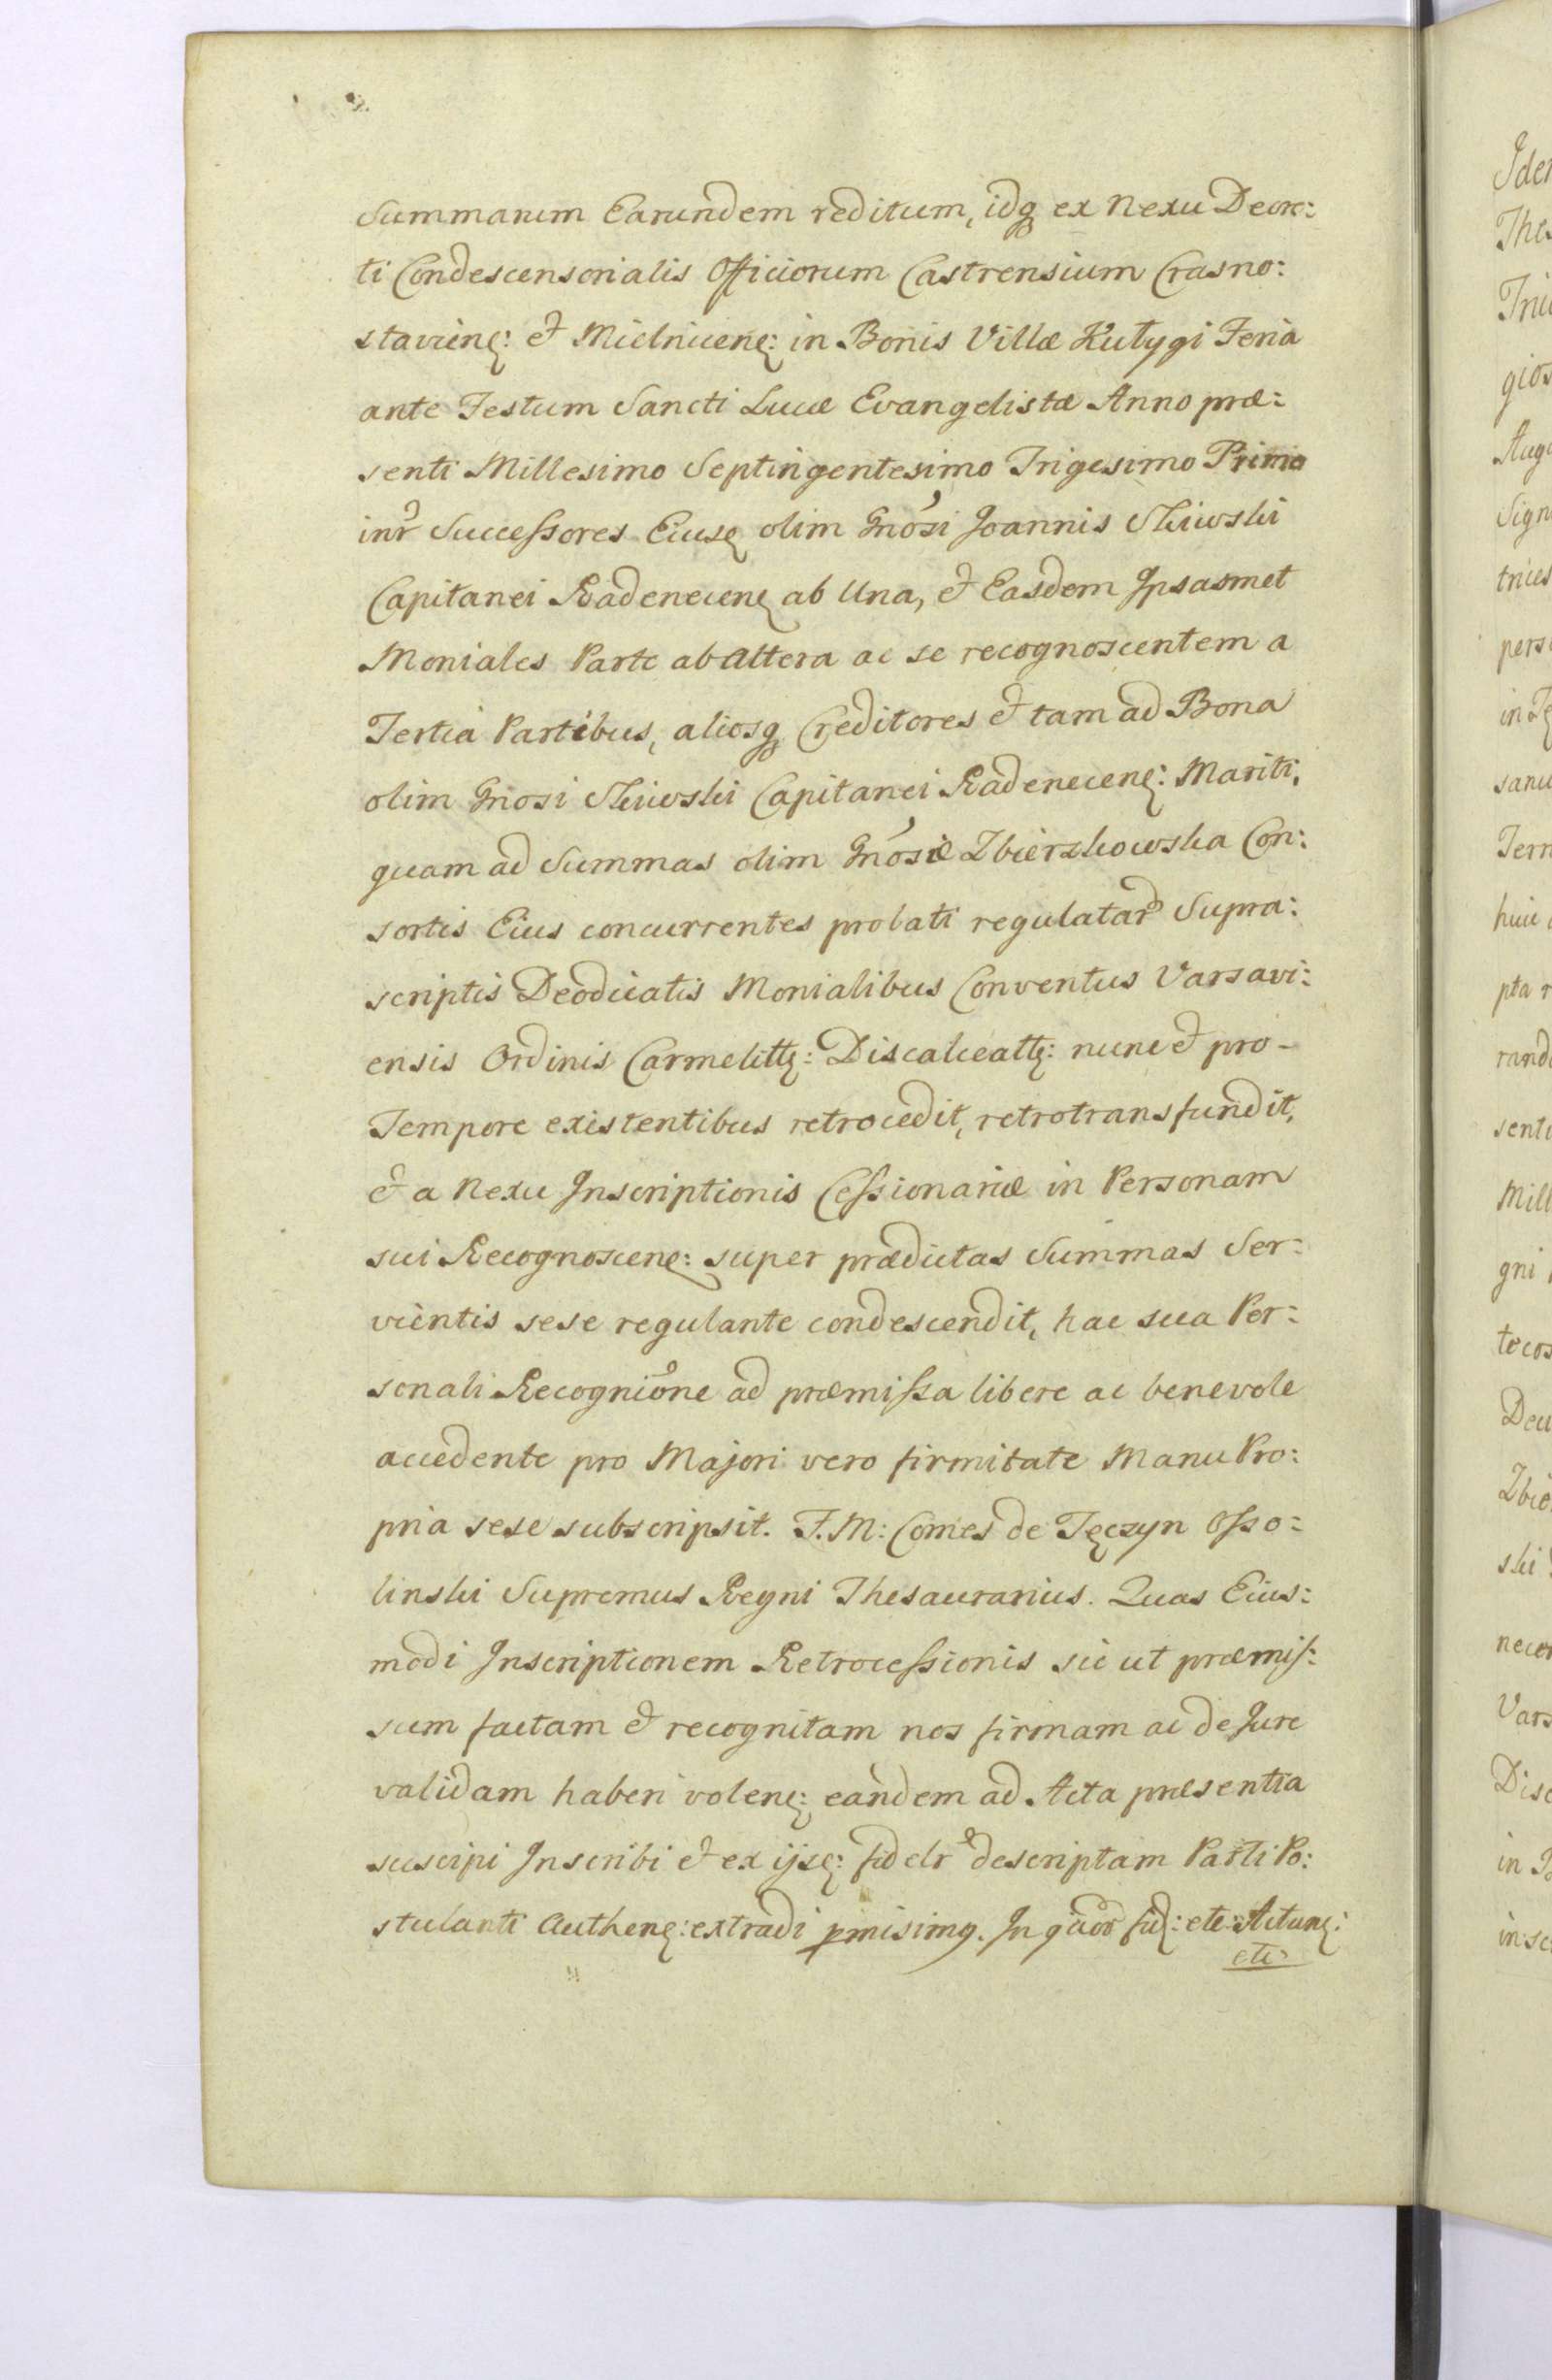 Summarum Earundem reditum, idq; ex Nexu Decre:
ti Condescensorialis Officiorum Castrensium Crasno:
staviens: et Mielnicens: in Bonis Villæ Kutygi Feria
ante Festum Sancti Lucæ Evangelistæ Anno præ:
senti Millesimo Septingentesimo Trigesimo Primo
intr Successores Eiusd olim Gnosi Joannis Skiwski
Capitanei Radenecens ab Una, et Easdem Ipsasmet
Moniales Parte ab altera ac se recognoscentem a
Tertia Partibus, aliosq; Creditores et tam ad Bona
olim Gnosi Skiwski Capitanei Radenecens: Mariti,
quam ad Summas olim Gnosæ Zbierzkowska Con:
sortis Eius concurrentes probati regulatar Supra:
scriptis Deodicatis Monialibus Conventus Varsavi:
ensis Ordinis Carmelitt: Discalceatt: nunc et pro-
Tempore existentibus retrocedit, retrotransfundit,
et a Nexu Inscriptionis Cessionariæ in Personam
sui Recognoscens: super prædictas Summas Ser:
vientis sese regulante condescendit, hac sua Per:
sonali Recognione ad præmissa libere ac benevole
accedente pro Majori vero firmitate Manu Pro:
pria sese subscripsit. F. M: Comes de Tęczyn Osso:
linski Supremus Regni Thesaurarius. Quas Eius:
modi Inscriptionem Retrocessionis sic ut præmis:
sum factam et recognitam nos firmam ac de Jure
validam haberi volens: eandem ad Acta præsentia
suscipi Inscribi et ex ijsd: fidelr descriptam Parti Po:
stulanti Authens: extradi pmisimq. In quor fid: etc. Actum:
etc
Iden
The
gios
Sign
trices
pers
in
sanc
huic
pta r
rand
senti
Mill
gni
tocos
Dec
Zbie
ski
necen
Vars
Disc
in
insc